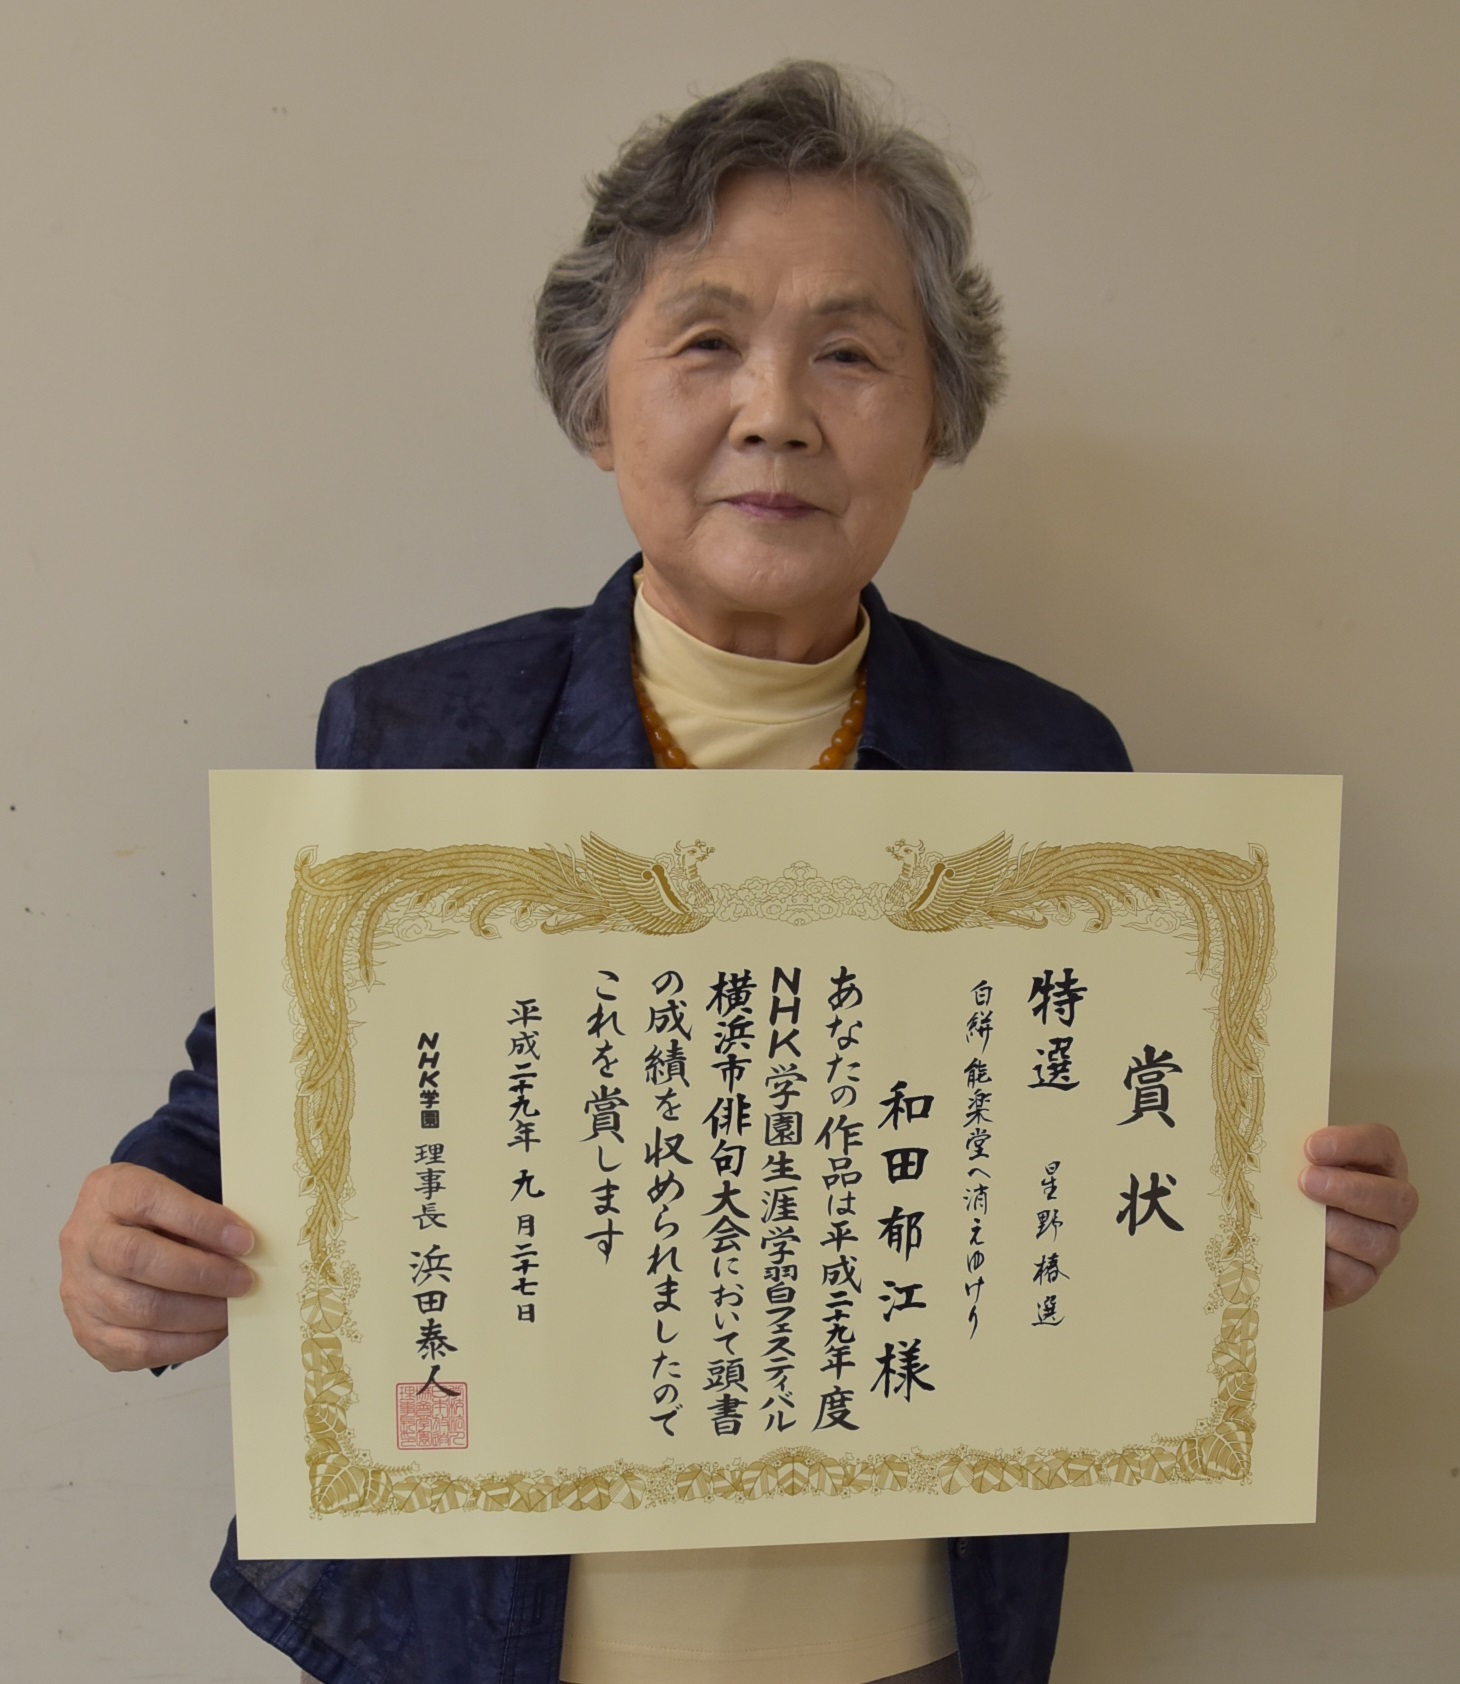 賞状
特選 星野椿選
白絣能楽堂へ消えゆけり
和田郁江様
あなたの作品は平成二十九年度
NHK学園生涯学習フェスティバル
横浜市俳句大会において頭書
の成績を収められましたので
これを賞します
平成二十九年九月二十七日
NHK学園 理事長 浜田泰人